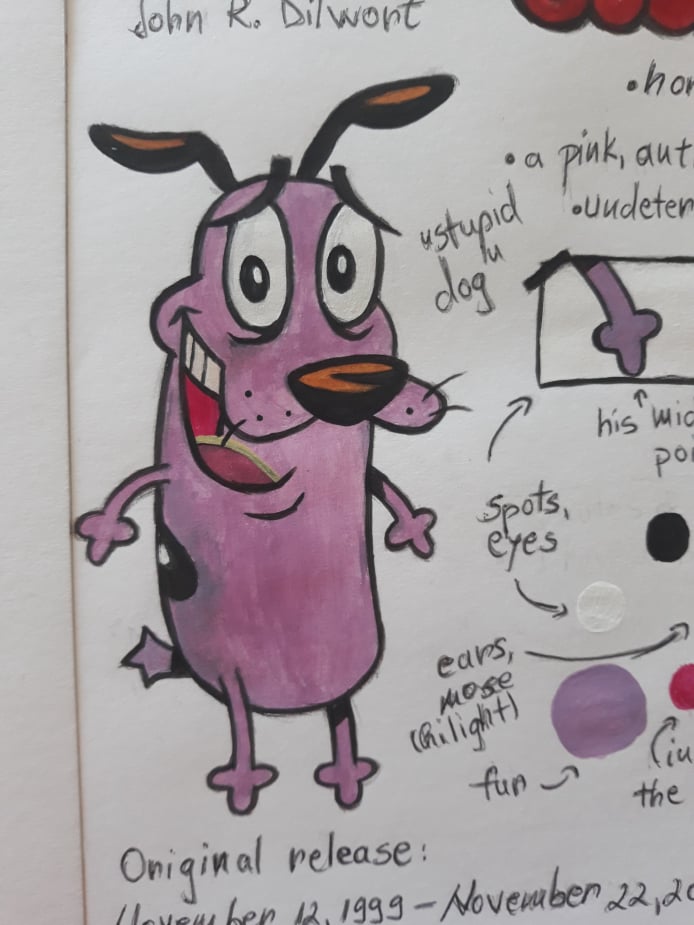 John R. Dilwort
• hor
• a pink, aut
• undeter
"stupid
dog"
his mid
po
spots,
eyes
ears,
nose
(hilight)
fur
(in
the
Original release:
November 12, 1999 – November 22, 20